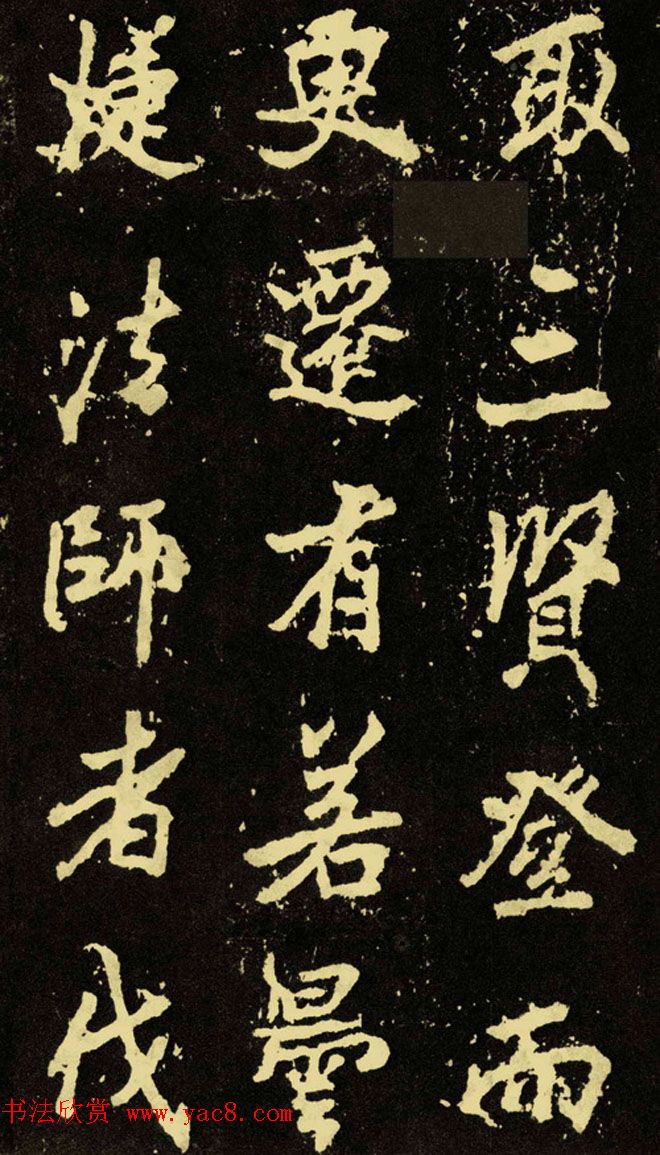 取三賢登而
更遷有若曇
捷法師者伐
书法欣赏 www.yac8.com